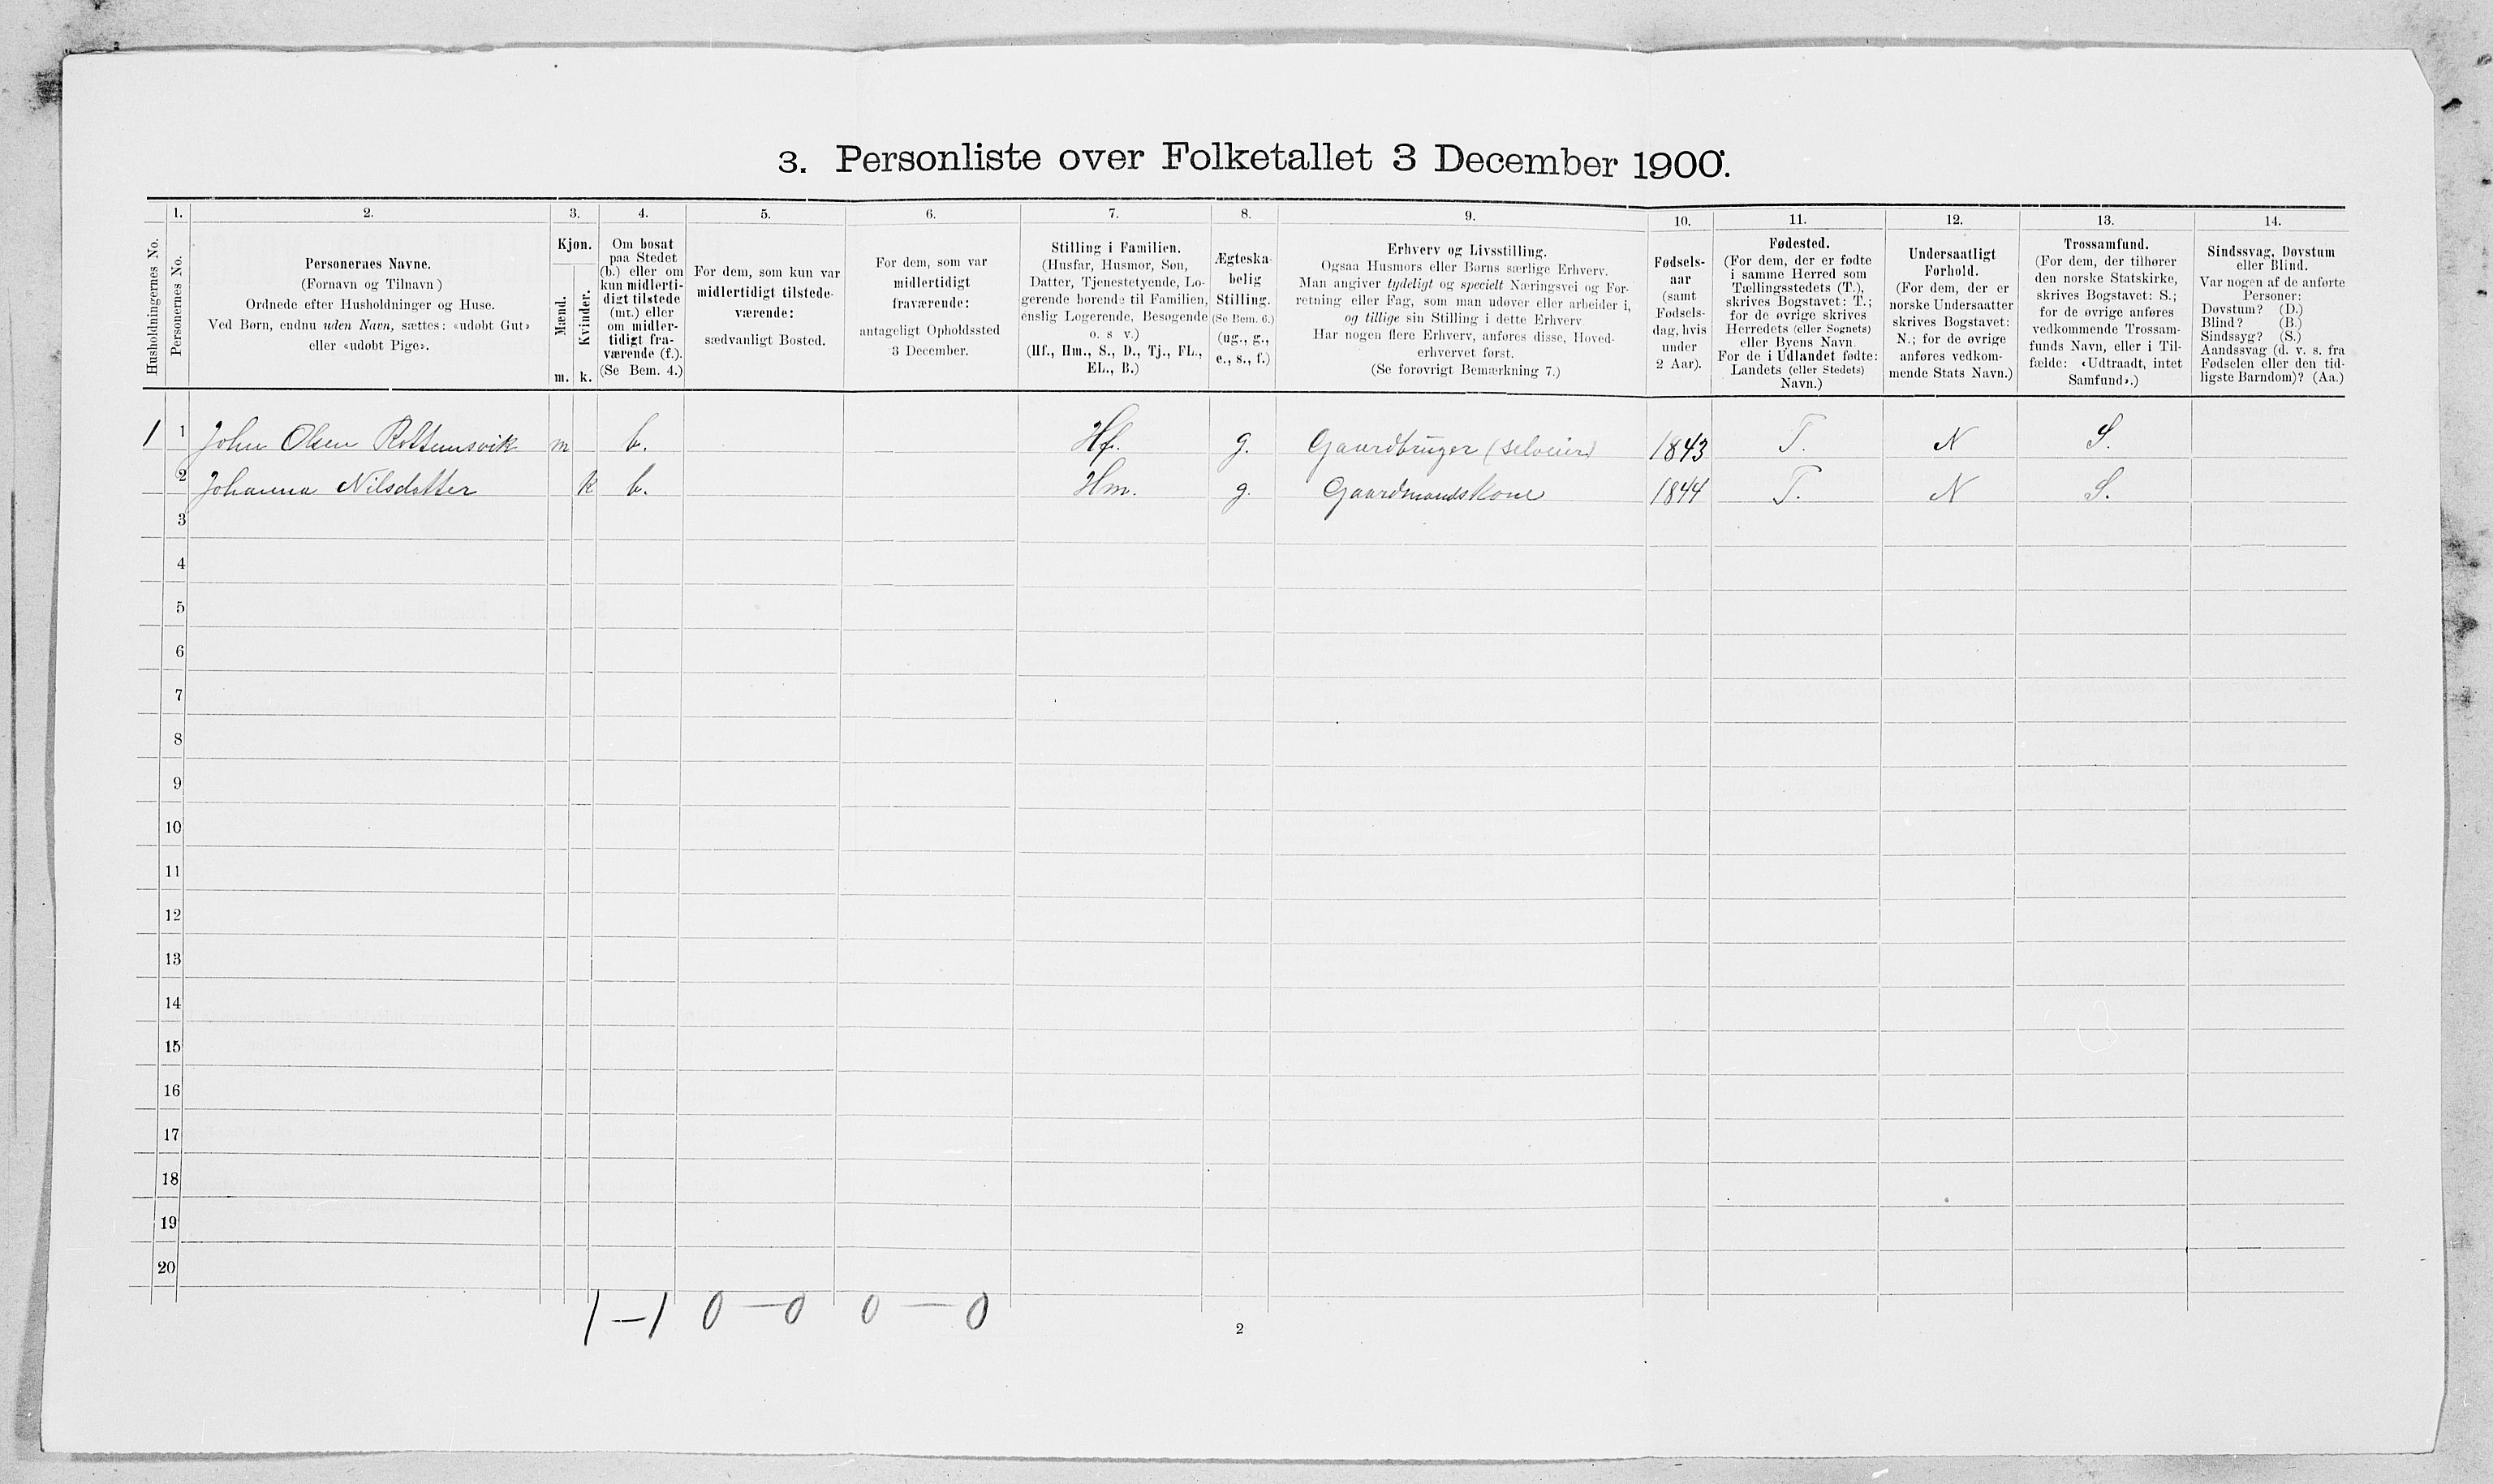 3. Personliste over Folketallet 3 December 1900.
1. 2. 3. 4. 5. 6. 7. 8. 9. 10. 11. 12. 13. 14.
Husholdningernes No.
Personernes No.
Personernes Navne.
(Fornavn og Tilnavn)
Ordnede efter Husholdninger og Huse.
Ved Børn, endnu uden Navn, sættes: «udøbt Gut»
eller «udøbt Pige».
Kjøn.
Mænd.
Kvinder.
m. k.
Om bosat
paa Stedet
(b.) eller om
kun midlerti-
digt tilstede
(mt.) eller
om midler-
tidigt fra-
værende (f.).
(Se Bem. 4.)
For dem, som kun var
midlertidigt tilstede-
værende:
sædvanligt Bosted.
For dem, som var
midlertidigt
fraværende:
antageligt Opholdssted
3 December.
Stilling i Familien.
(Husfar, Husmor, Søn,
Datter, Tjenestetyende, Lo-
gerende hørende til Familien,
enslig Logerende, Besøgende
o. s v.)
(Hf., Hm., S., D., Tj., FL.,
EL., B.)
Ægteska-
belig
Stilling.
(Se Bem. 6.)
(ug., g.,
e., s., f.)
Erhverv og Livsstilling.
Ogsaa Husmors eller Børns særlige Erhverv.
Man angiver tydeligt og specielt Næringsvei og For-
retning eller Fag, som man udøver eller arbeider i,
og tillige sin Stilling i dette Erhverv.
Har nogen flere Erhverv, anføres disse, Hoved-
erhvervet først.
(Se forøvrigt Bemærkning 7.)
Fødsels-
aar
(samt
Fødsels-
dag, hvis
under
2 Aar).
Fødested.
(For dem, der er fødte
i samme Herred som
Tællingsstedets (T.),
skrives Bogstavet: T.;
for de øvrige skrives
Herredets (eller Sognets)
eller Byens Navn.
For de i Udlandet fødte:
Landets (eller Stedets)
Navn.)
Undersaatligt
Forhold.
(For dem, der er
norske Undersaatter
skrives Bogstavet:
N.; for de øvrige
anføres vedkom-
mende Stats Navn.)
Trossamfund.
(For dem, der tilhører
den norske Statskirke,
skrives Bogstavet: S.;
for de øvrige anføres
vedkommende Trossam-
funds Navn, eller i Til-
fælde: «Udtraadt, intet
Samfund».)
Sindssvag, Døvstum
eller Blind.
Var nogen af de anførte
Personer:
Døvstum? (D.)
Blind? (B.)
Sindssyg? (S.)
Aandssvag (d. v. s. fra
Fødselen eller den tid-
ligste Barndom)? (Aa.)
1 1 John Olsen Rottemsvik m b. Hf. g. Gaardbruger (selveier) 1843 T. N S.
2 Johanna Nilsdatter k b. Hm. g. Gaardmandskone 1844 T. N S.
3
4
5
6
7
8
9
10
11
12
13
14
15
16
17
18
19
20
1 — 1 0 — 0 0 — 0
2